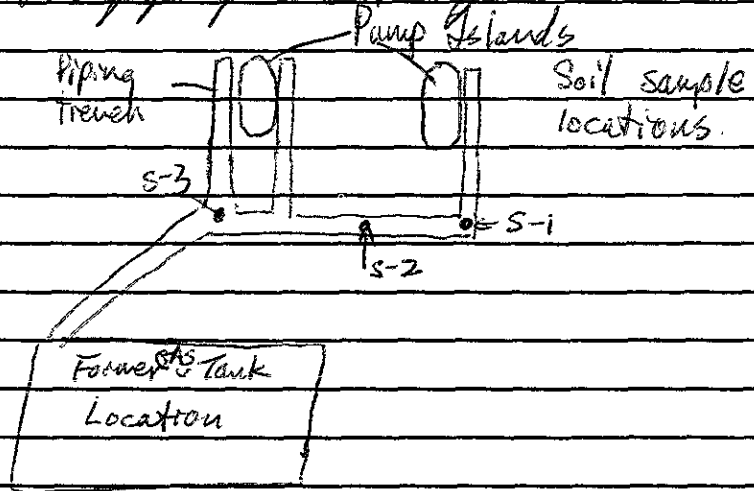 Pump Islands
Piping Trench
Soil sample locations.
S-3
S-1
S-2
Former Gas Tank
Location